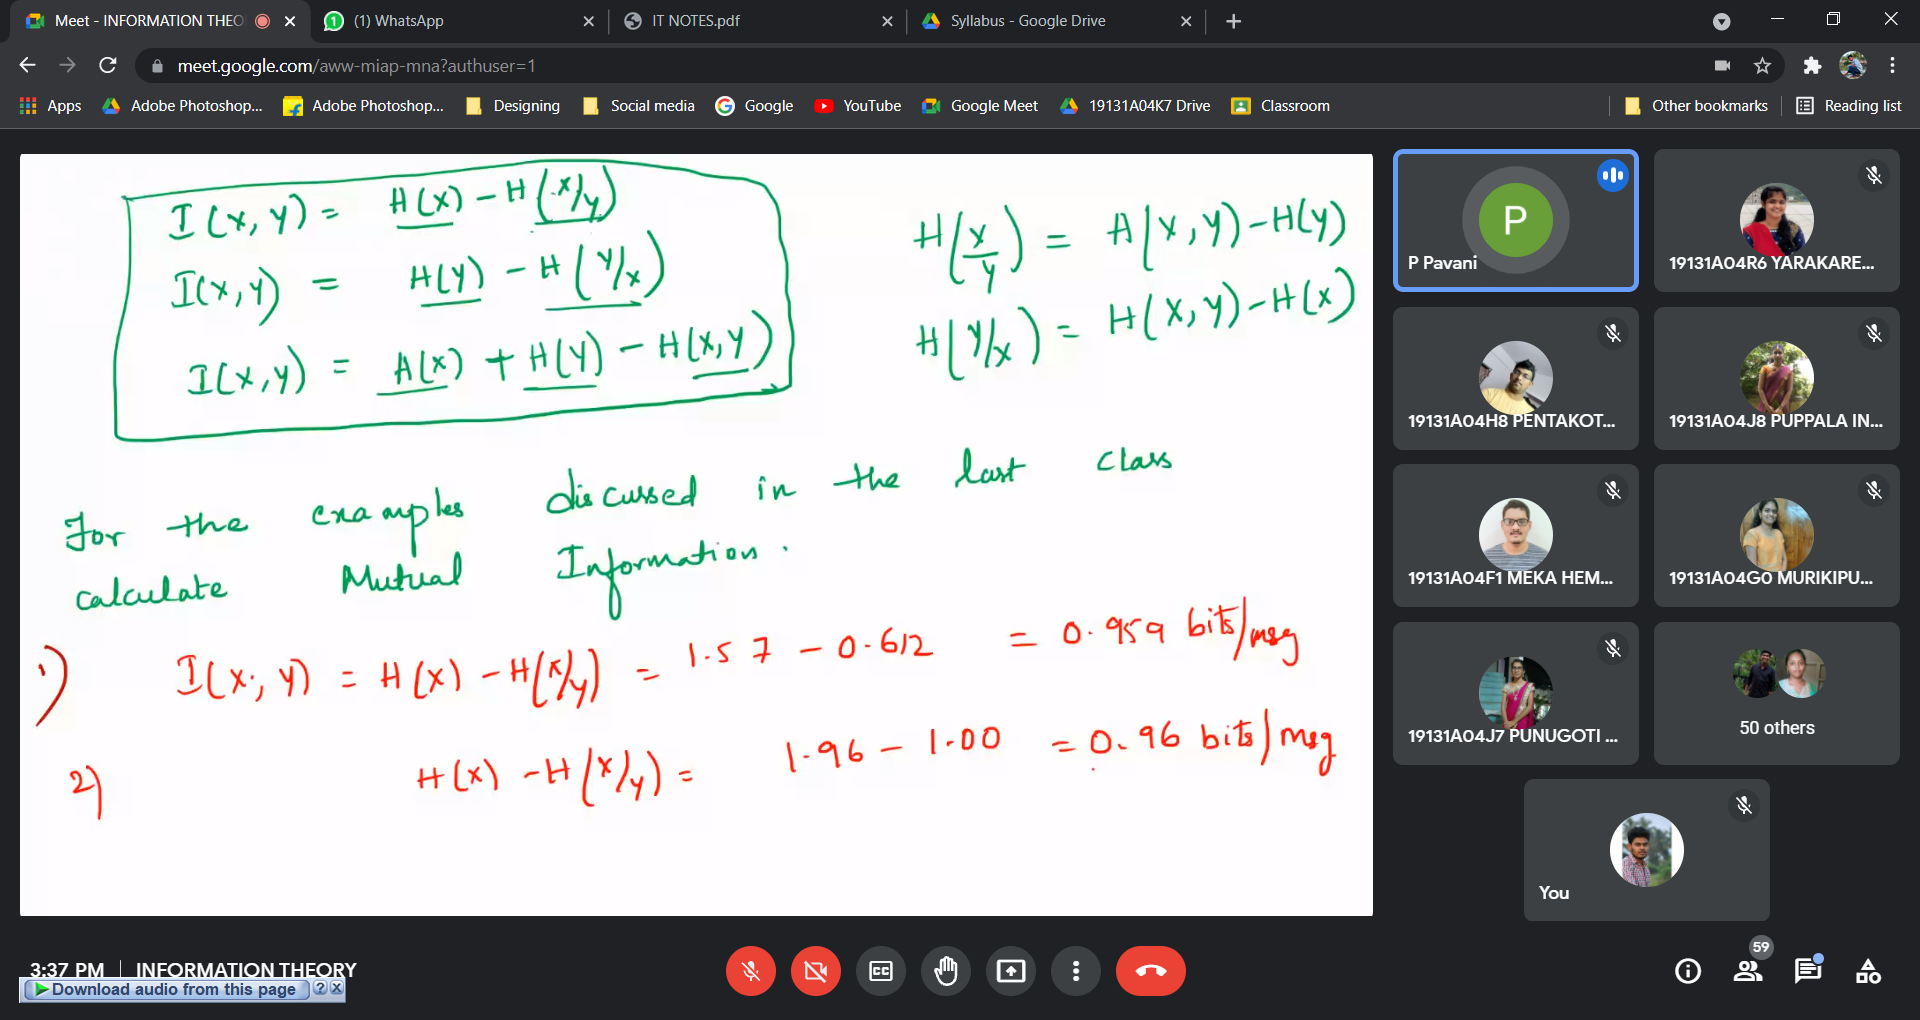 Meet - INFORMATION THEO
(1) WhatsApp
IT NOTES.pdf
Syllabus - Google Drive
meet.google.com/aww-miap-mna?authuser=1
Apps
Adobe Photoshop...
Adobe Photoshop...
Designing
Social media
Google
YouTube
Google Meet
19131A04K7 Drive
Classroom
Other bookmarks
Reading list
I(X,Y) = H(X) - H(X/Y)
I(X,Y) = H(Y) - H(Y/X)
I(X,Y) = H(X) + H(Y) - H(X,Y)
H(X/Y) = H(X,Y) - H(Y)
H(Y/X) = H(X,Y) - H(X)
For the examples discussed in the last class
calculate Mutual Information.
1) I(X,Y) = H(X) - H(X/Y) = 1.57 - 0.612 = 0.959 bits/msg
2) H(X) - H(X/Y) = 1.96 - 1.00 = 0.96 bits/msg
P
P Pavani
19131A04R6 YARAKARE...
19131A04H8 PENTAKOT...
19131A04J8 PUPPALA IN...
19131A04F1 MEKA HEM...
19131A04G0 MURIKIPU...
19131A04J7 PUNUGOTI ...
50 others
You
3:37 PM | INFORMATION THEORY
Download audio from this page ? X
CC
59